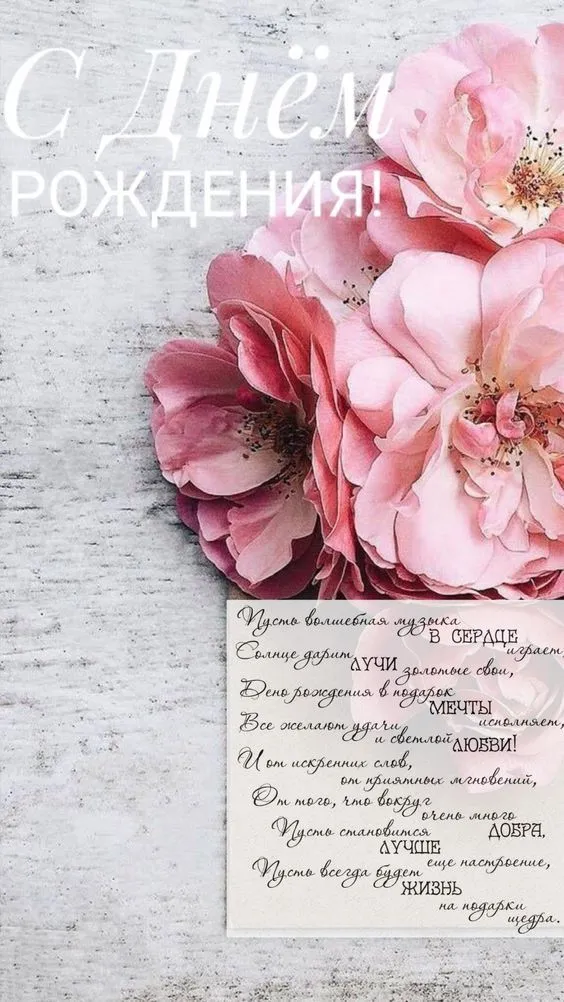 С Днём
РОЖДЕНИЯ!
Пусть волшебная музыка
В СЕРДЦЕ
играет,
Солнце дарит
ЛУЧИ золотые свои,
День рождения в подарок
МЕЧТЫ
исполняет,
Все желают удачи
и светлой ЛЮБВИ!
И от искренних слов,
от приятных мгновений,
От того, что вокруг
очень много
ДОБРА,
Пусть становится
ЛУЧШЕ
еще настроение,
Пусть всегда будет
ЖИЗНЬ
на подарки
щедра.